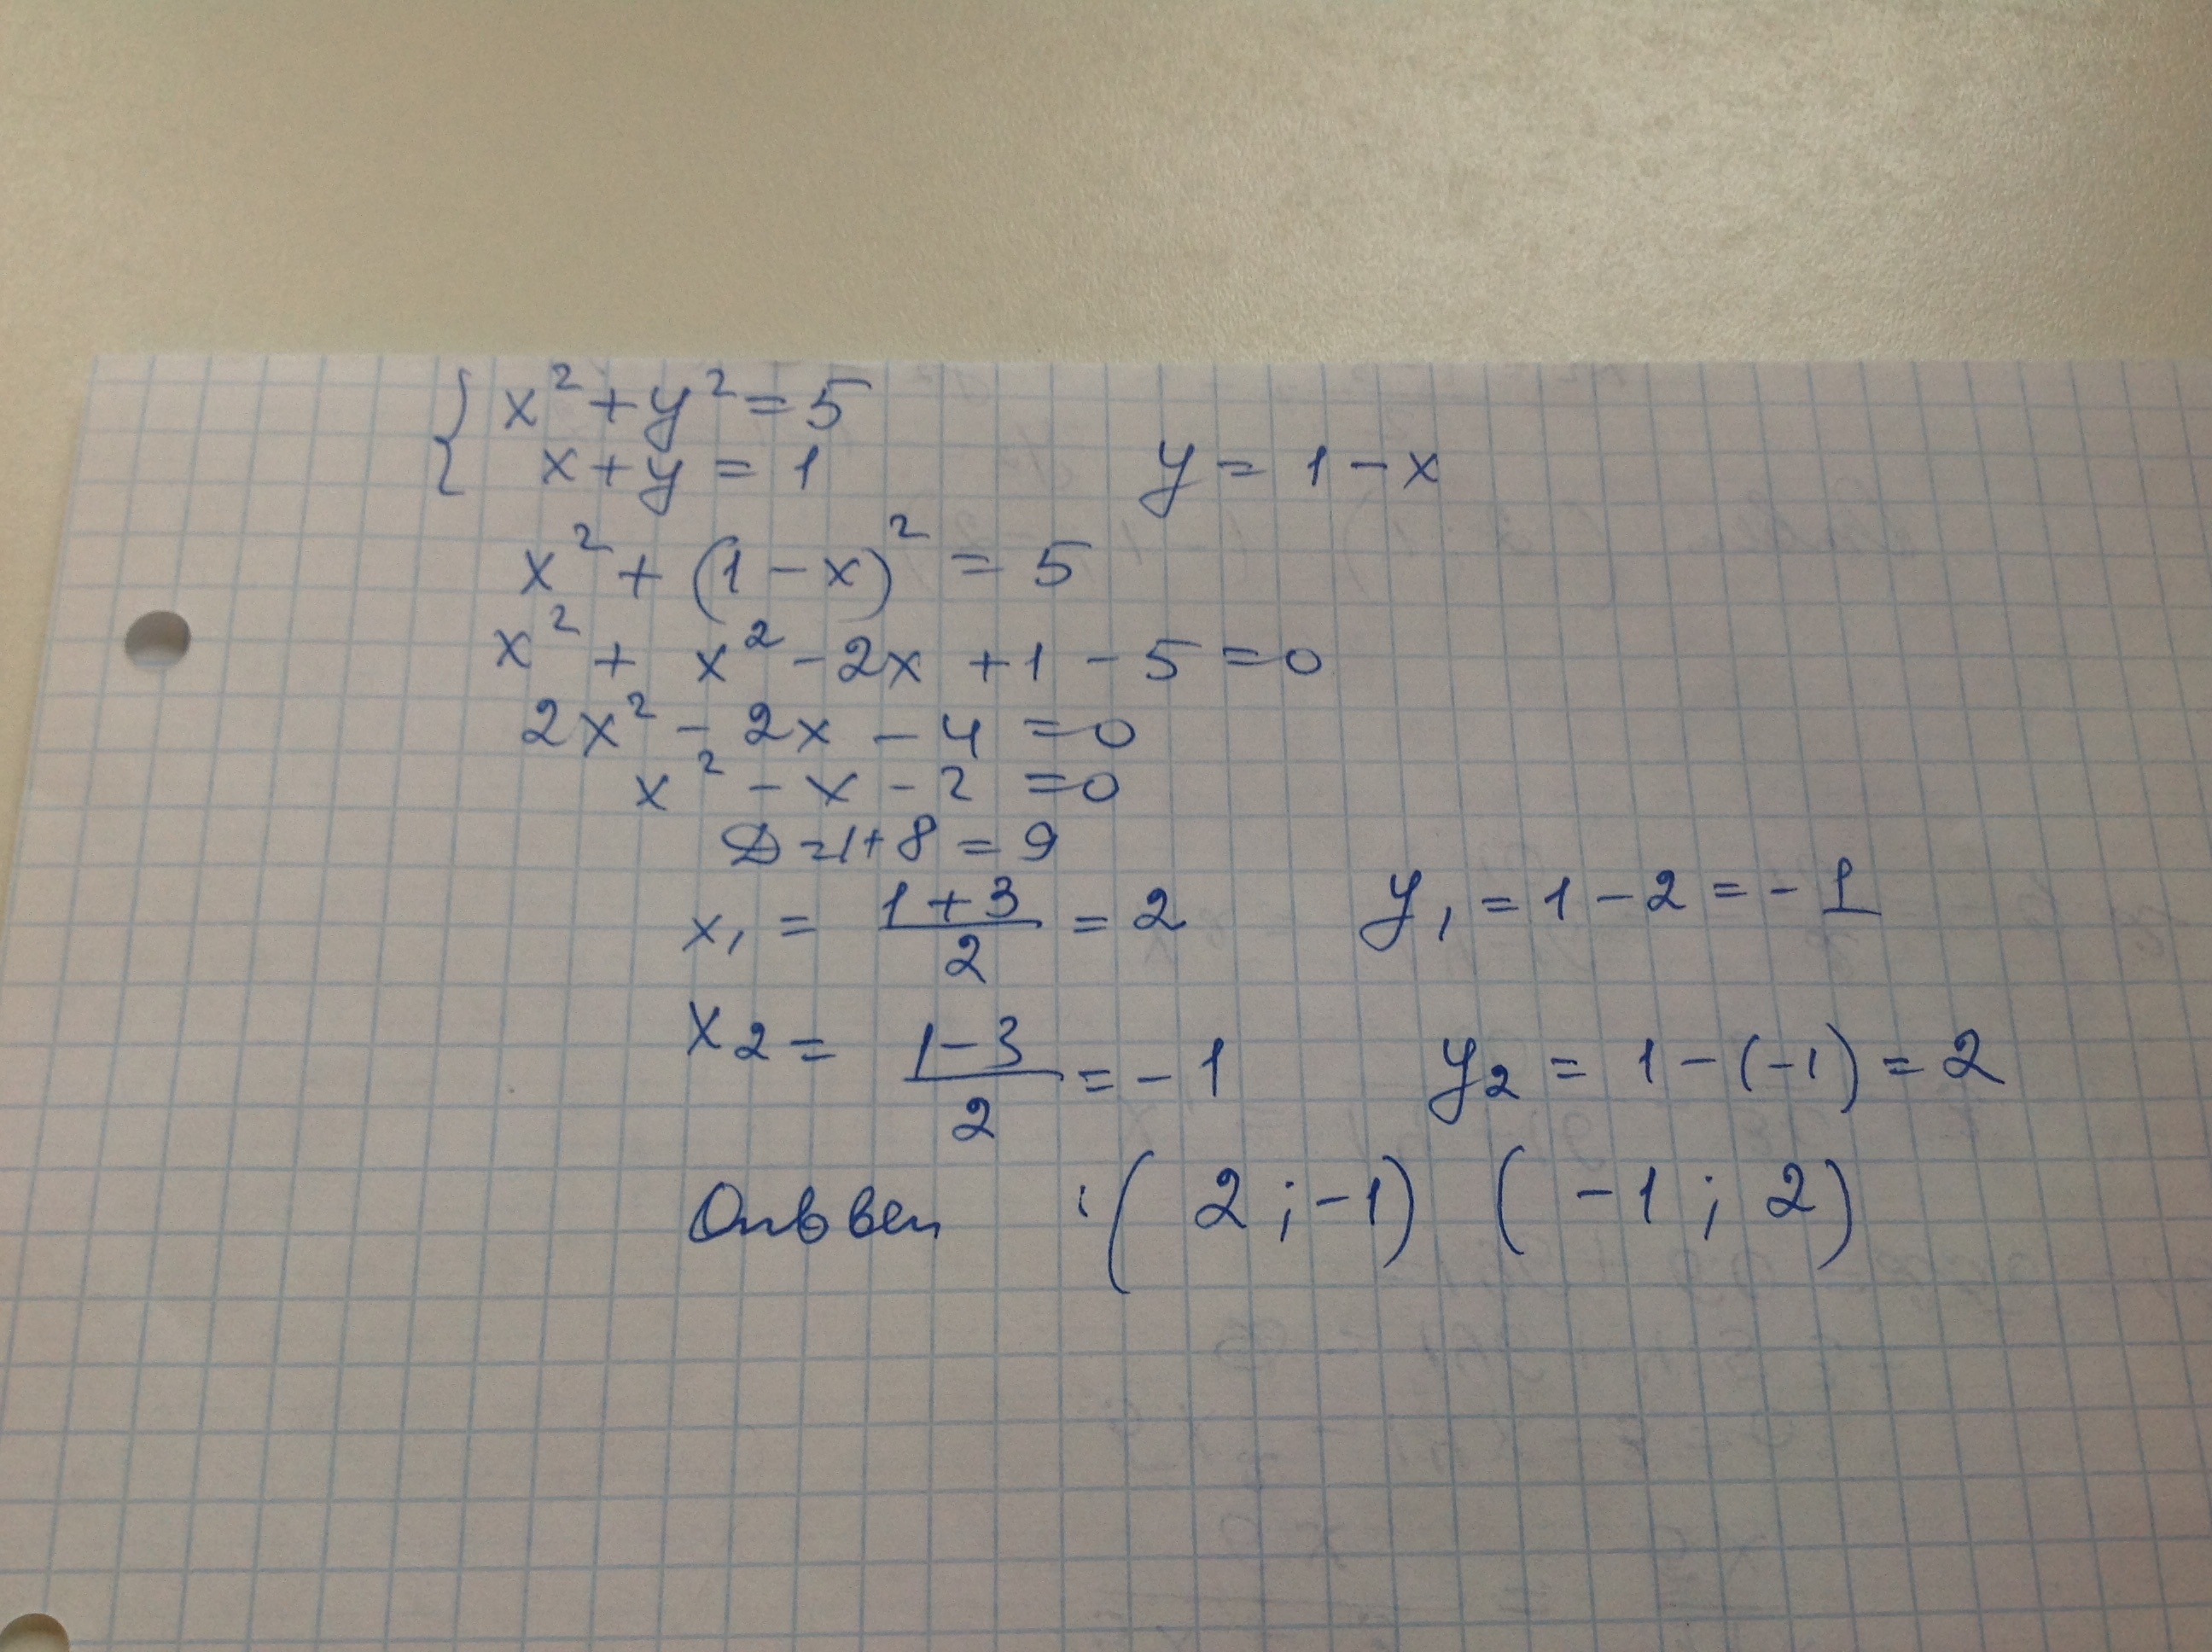 { x² + y² = 5
x + y = 1 y = 1 - x
x² + (1 - x)² = 5
x² + x² - 2x + 1 - 5 = 0
2x² - 2x - 4 = 0
x² - x - 2 = 0
D = 1 + 8 = 9
x₁ = (1 + 3)/2 = 2 y₁ = 1 - 2 = - 1
x₂ = (1 - 3)/2 = - 1 y₂ = 1 - (-1) = 2
Ответ : (2 ; -1) (-1 ; 2)